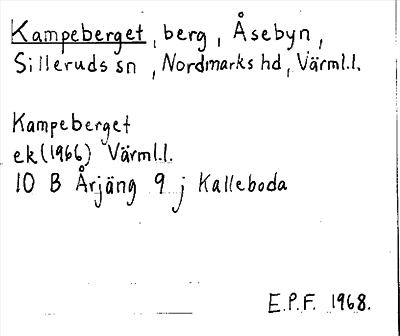 Kampeberget, berg, Åsebyn,
Silleruds sn, Nordmarks hd, Värml.l.
Kampeberget
ek(1966) Värml.l.
10 B Årjäng 9 j Kalleboda
E.P.F. 1968.